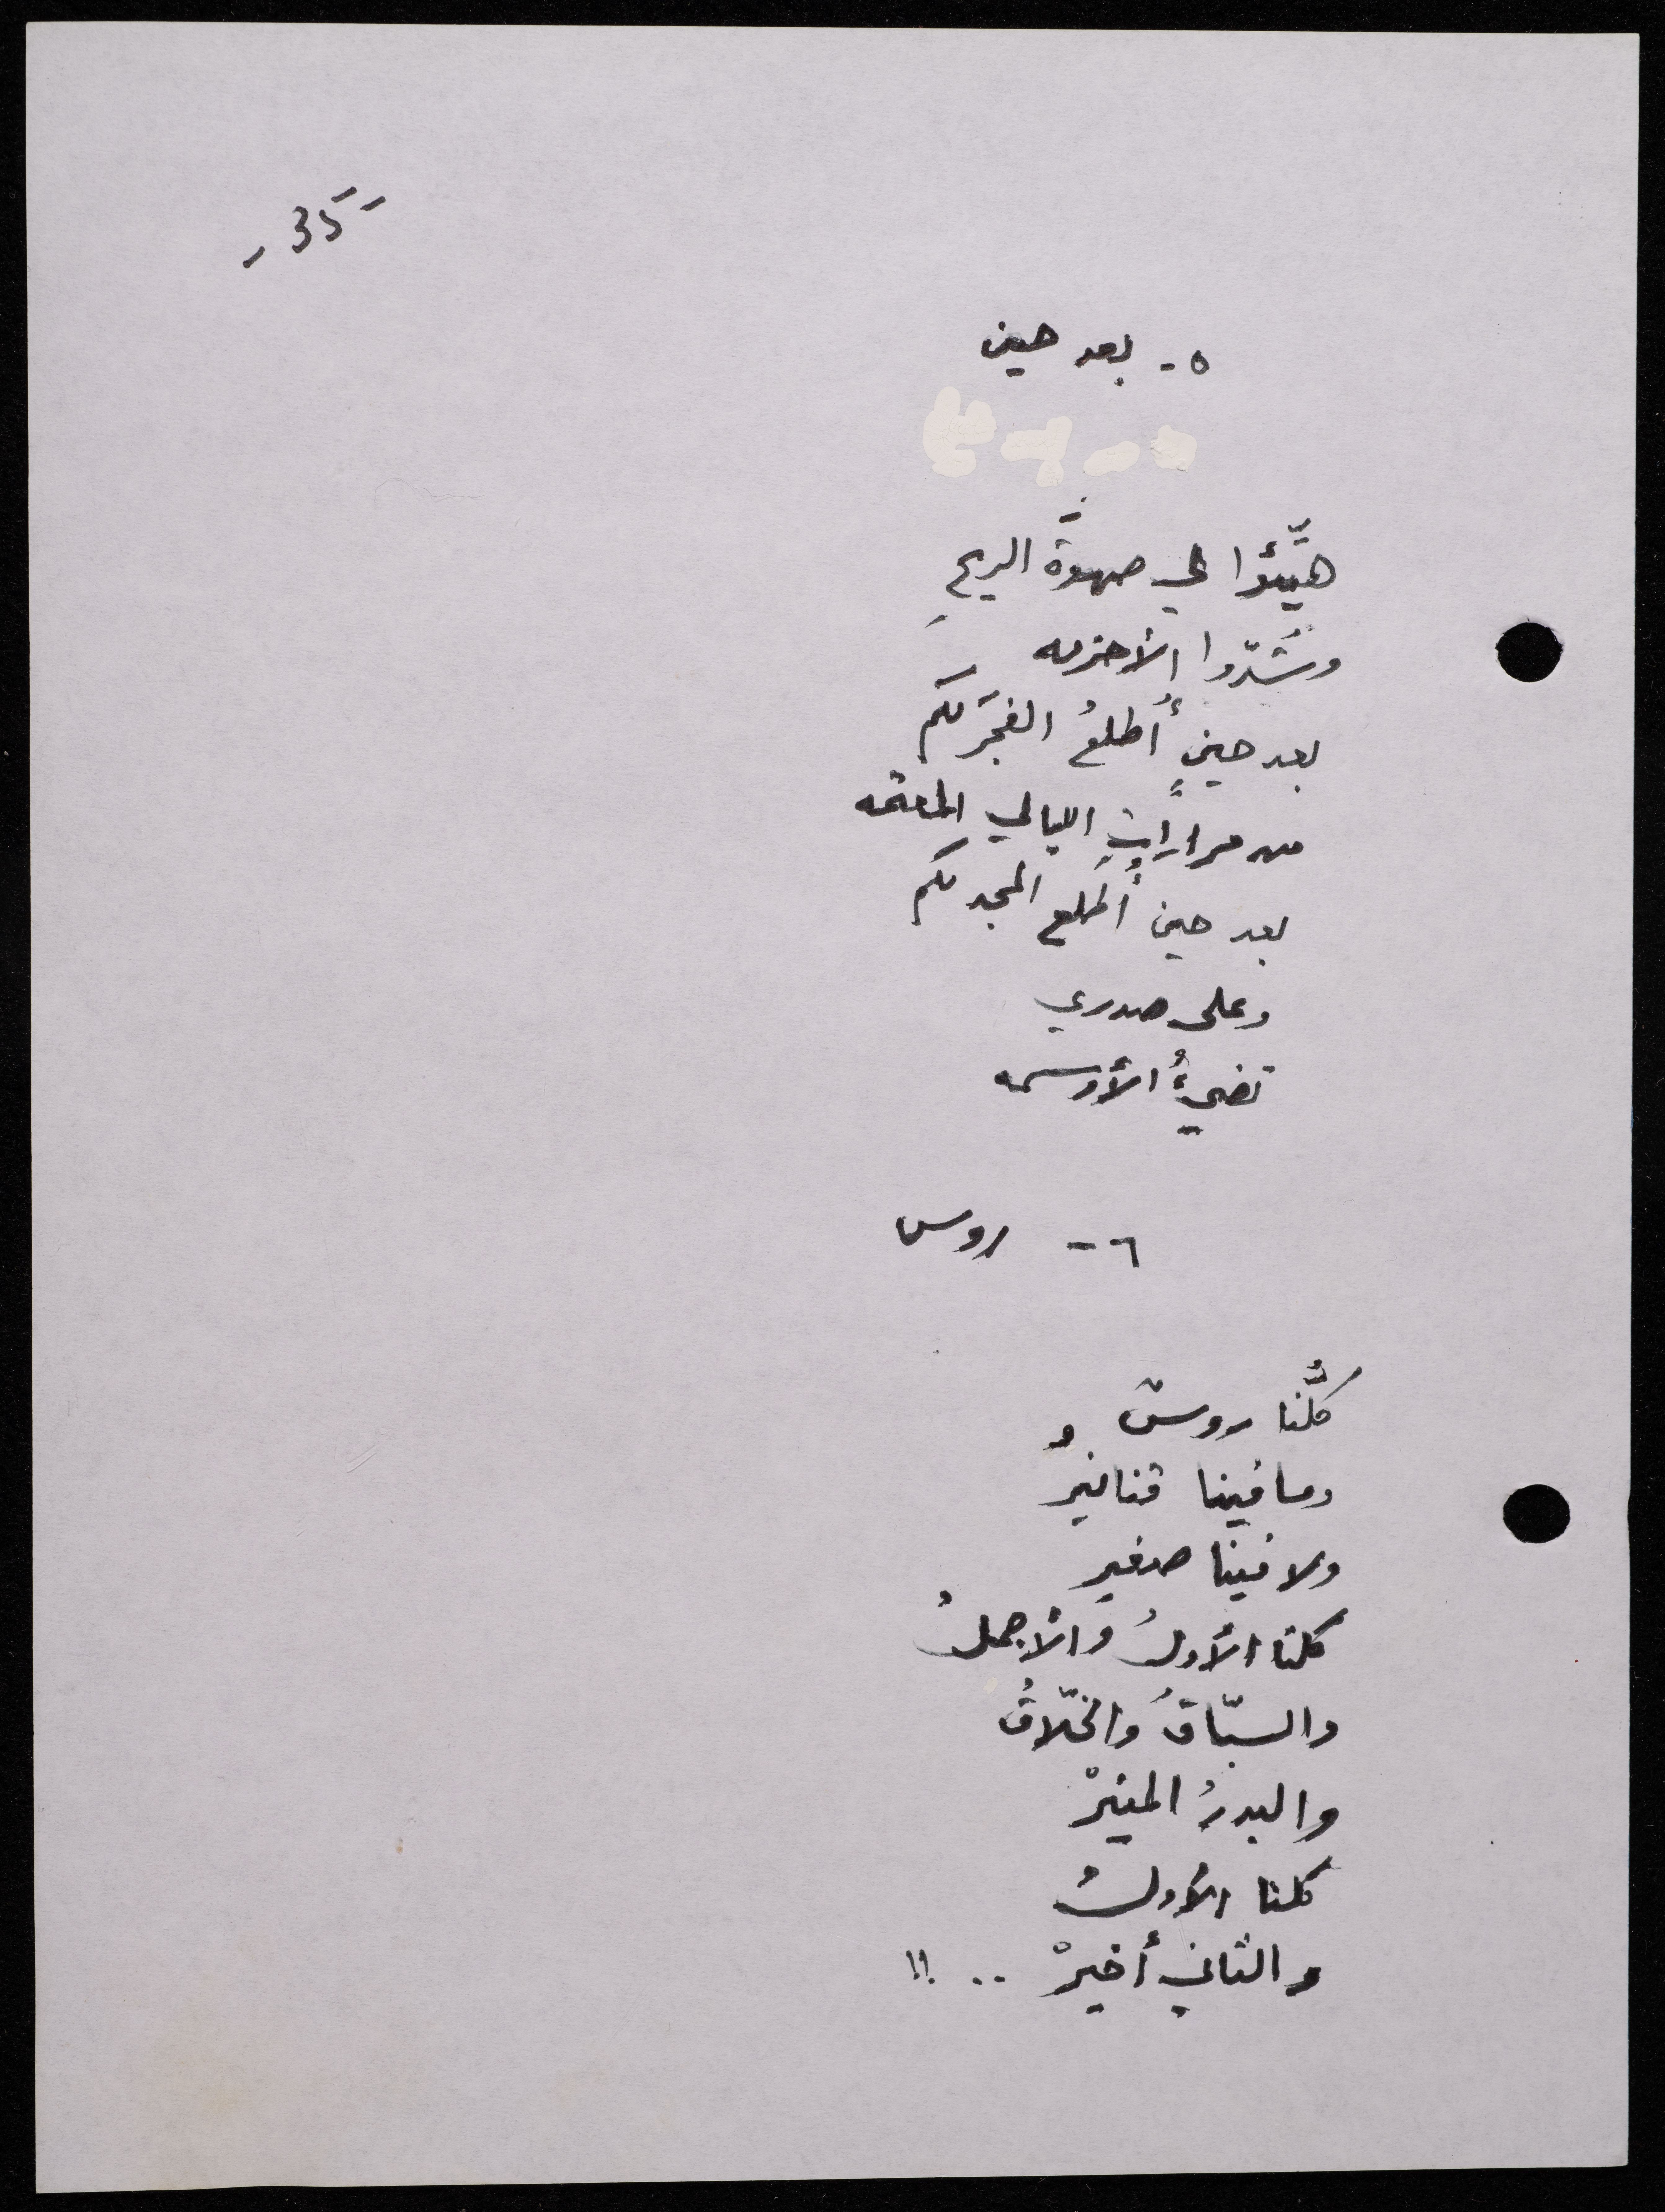 - 35 -
٥ - بعد حين
هَيِّئوا لي صهوةَ الريحِ
وشُدّوا الأحزمه
بعد حينٍ أُطلعُ الفجرَ لكم
من مراراتِ الليالي المعتمه
بعد حين أُطلع المجد لكم
وعلى صدري
تضيءُ الأوسمه
٦ - روس
كلُّنا روسٌ
وما فينا قنانيرُ
ولا فينا صغير
كلنا الأولُ والأجملُ
والسبّاقُ والخلّاقُ
والبدرُ المنيرْ
كلنا الأولُ
والثاني أخيرْ .. !!